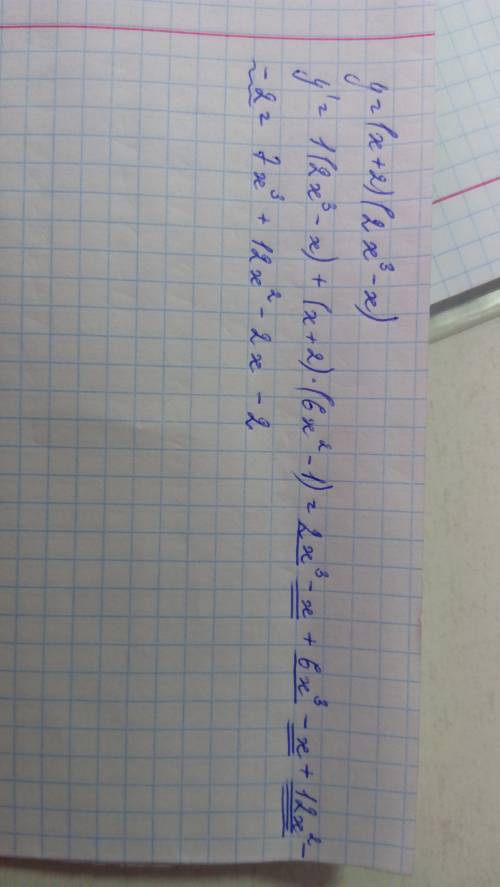 y = (x+2)(2x³ - x)
y' = 1(2x³ - x) + (x+2)·(6x² - 1) = 2x³ - x + 6x³ - x + 12x² -
- 2 = 7x³ + 12x² - 2x - 2